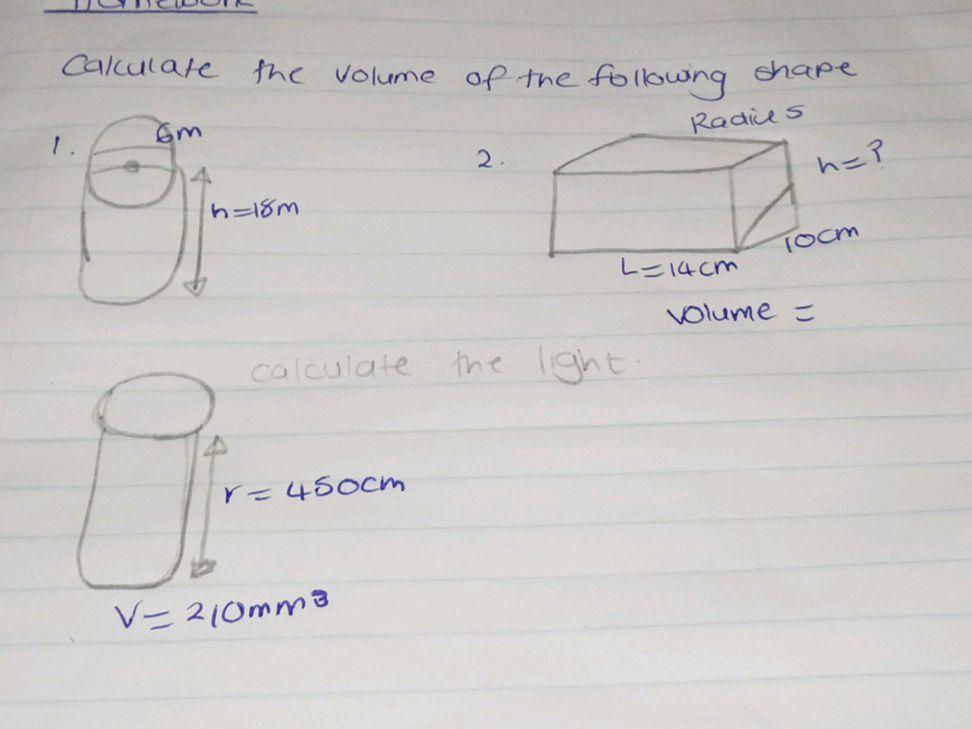 Homework
Calculate the volume of the following shape
1.
6m
h=18m
2.
Radius
h=?
10cm
L=14cm
volume =
calculate the light.
r=450cm
V=210mm³